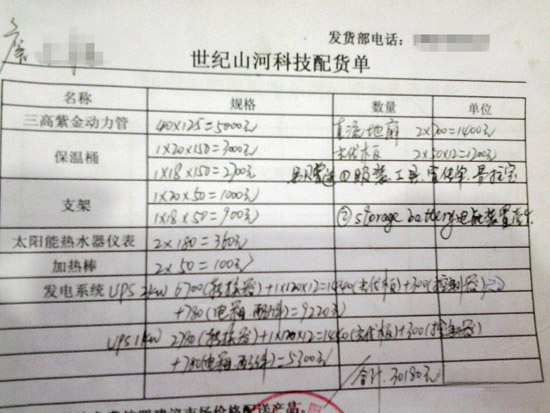 发货部电话:
世纪山河科技配货单
名称 规格 数量 单位
三高紫金动力管 40×125=5000元 直流地扇 2×700=1400元
保温桶 1×20×150=3000元 光伏板 2×50×12=1200元
1×18×150=2700元 ①服装工具、宣传单、易拉宝
支架 1×20×50=1000元
1×18×50=900元 ②storage battery电瓶装置
太阳能热水器仪表 2×180=360元
加热棒 2×50=100元
发电系统 UPS 2kw 6700(转换器)+1×120×12=1440(光伏板)+300(控制器)
+780(电箱、配件)=9220元
UPS 1kw 2780(转换器)+1×120×12=1440(光伏板)+300(控制器)
+780(电箱、配件)=5300元
合计:30180元
市场价格配送产品。